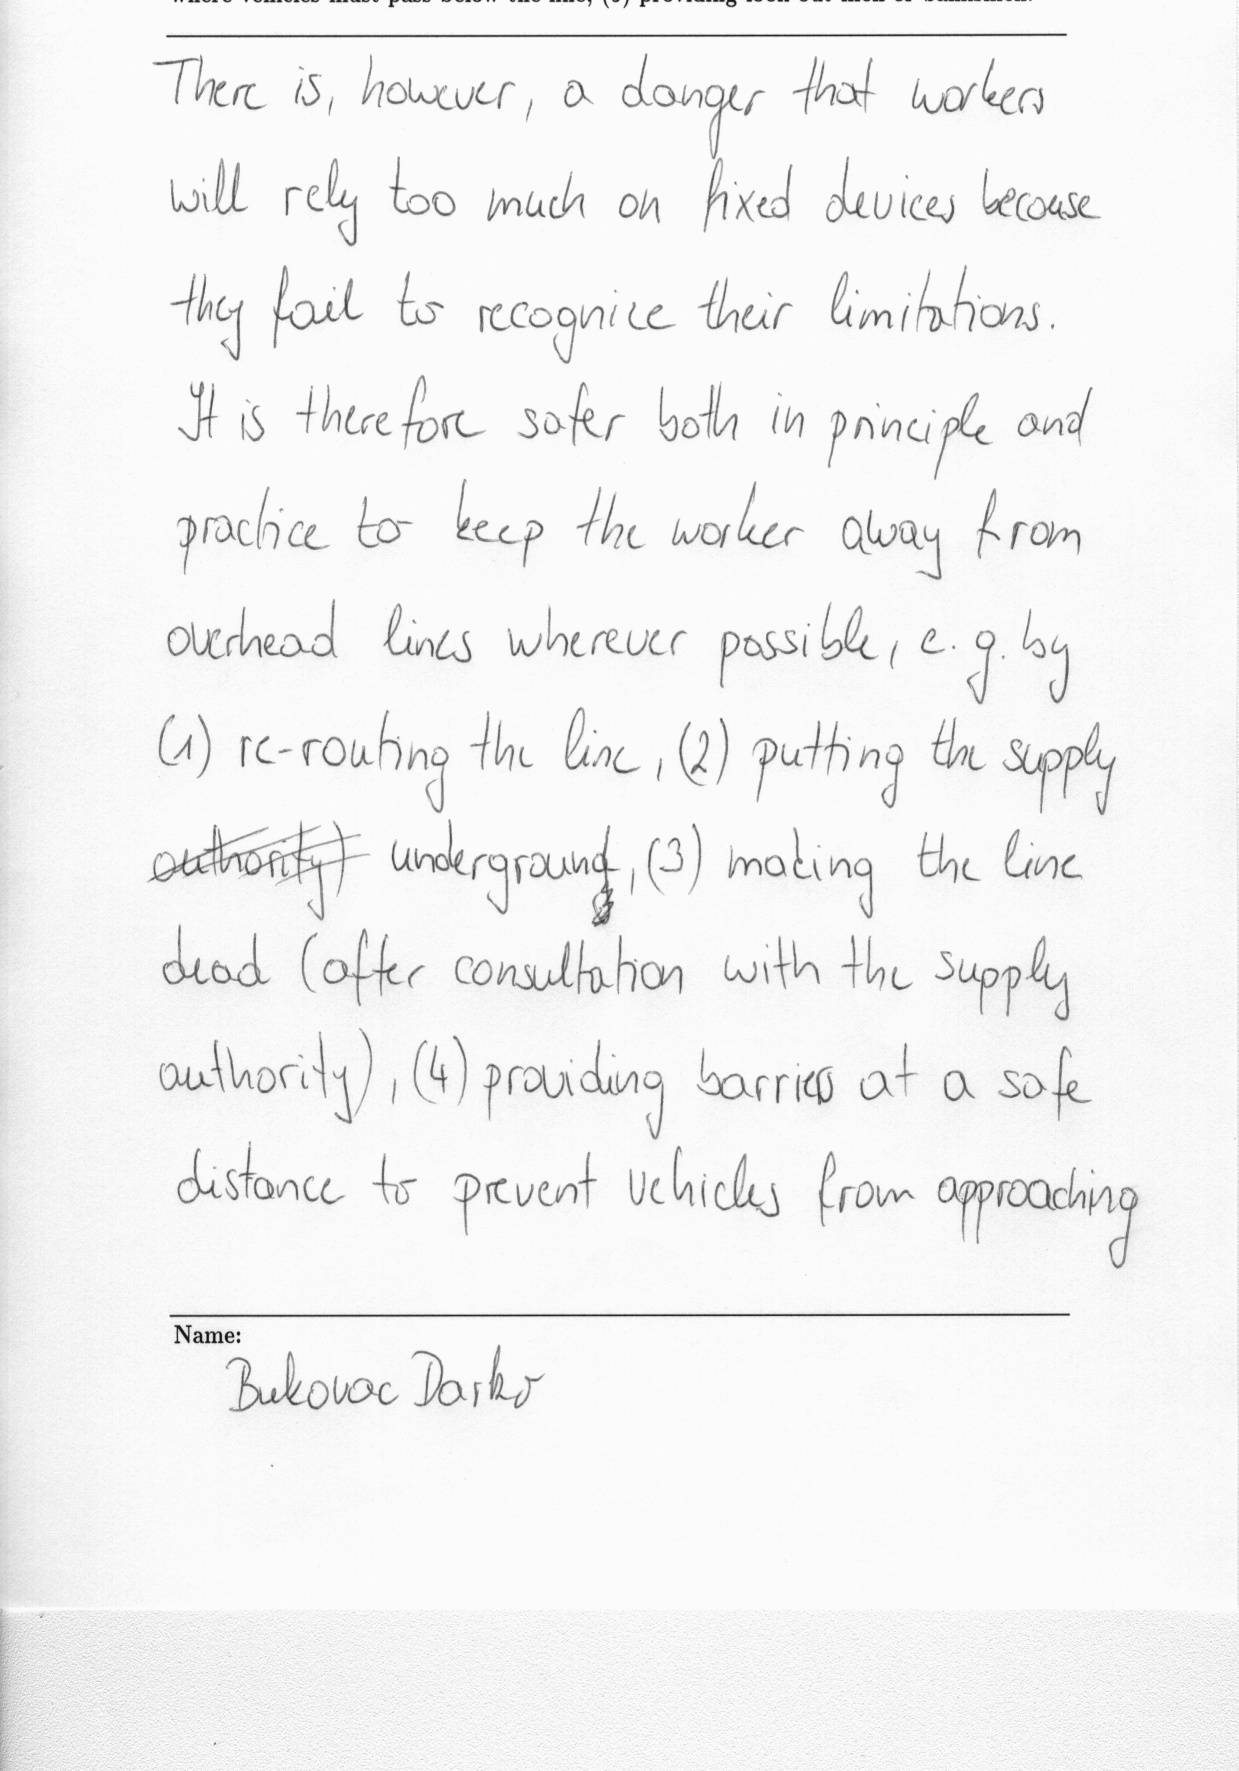 There is, however, a danger that workers
will rely too much on fixed devices because
they fail to recognice their limitations.
It is therefore safer both in principle and
practice to keep the worker away from
overhead lines wherever possible, e.g. by
(1) re-routing the line, (2) putting the supply
authority) underground, (3) making the line
dead (after consultation with the supply
authority), (4) providing barriers at a safe
distance to prevent vehicles from approaching
Name:
Bukovac Darko